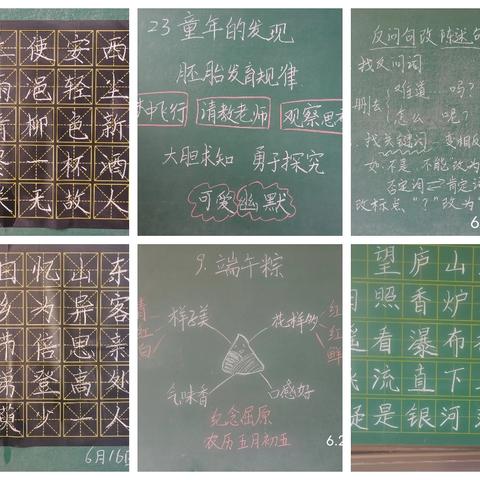 使安西
雨浥轻尘
青柳色新
一杯酒
无故人
23 童年的发现
胚胎发育规律
梦中飞行 请教老师 观察思考
大胆求知 勇于探究
可爱 幽默
反问句改陈述句
找反问词
删去 难道…吗?
怎么 呢?
找关键词 变相反
如 不是 不能改为
否定词⇌肯定词
改标点"?"改为"
6
忆山东
乡为异客
节倍思亲
弟登高处
萸少一人
6月16日
9.端午粽
青
红
白
样子美
花样多
红
红
鲜
气味香
口感好
纪念屈原
农历五月初五
6.2
望庐山
日照香炉
遥看瀑布
流直下
疑是银河